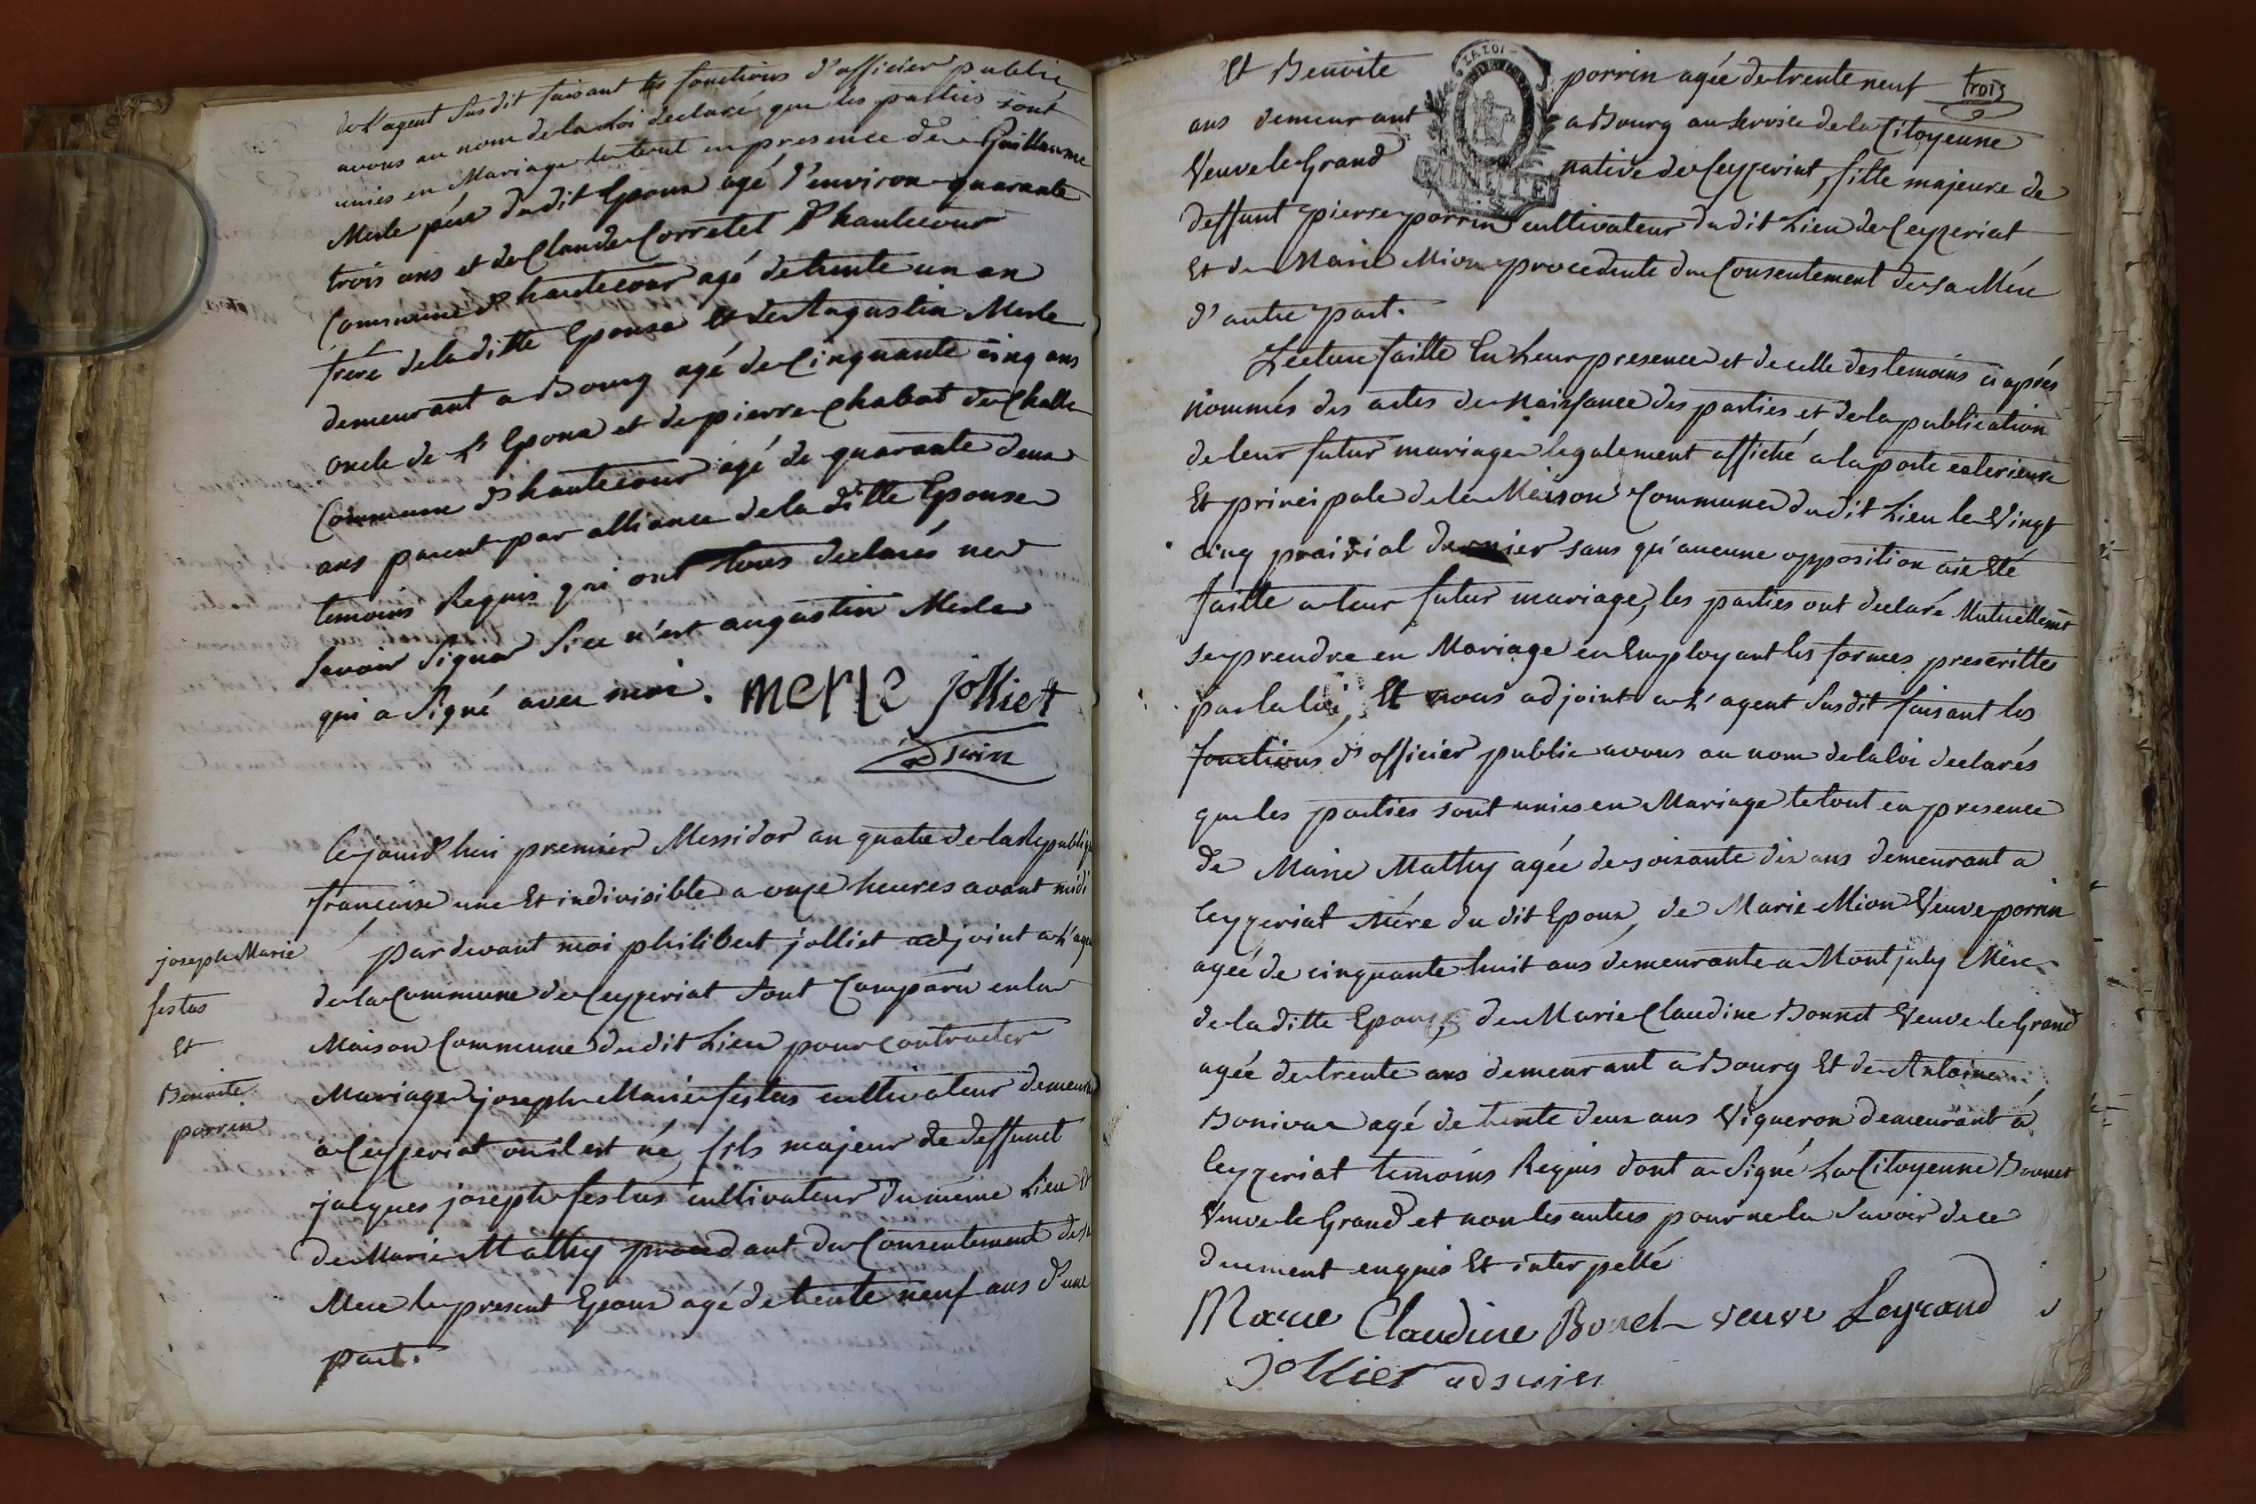 de l'agent susdit faisant les fonctions d'officier public
avons au nom de la Loi declaré que les parties sont
unies en Mariage le tout en presence de Guillaume
Merle pére du dit Epoux agé d'environ quarante
trois ans et de Claude Corretet d'hautecour
Commune d'hautecour agé de trente un an
frére de la ditte Epouse et de Augustin Merle
demeurant a Bourg agé de Cinquante cinq ans
oncle de L'Epoux et de pierre Chabat de Challe
Commune d'hautecour agé de quarante deux
ans parent par alliance de la ditte Epouse
temoins Requis qui ont tous declarés ne
savoir signer si ce n'est augustin Merle
qui a signé avec moi. merle jolliet
adjoin
Cejourd'hui premier Messidor an quatre de la Republiq
francoise une Et indivisible a onze heures avant midi
pardevant moi philibert jolliet adjoint a L'agen
de la Commune de Ceyzeriat sont Comparu en la
Maison Commune du dit Lieu pour contracter
Mariage joseph Marie festas cultivateur demeura
a Ceyzeriat ou il est né, fils majeur de deffunct
jacques joseph festas cultivateur du méme Lieu Et
de Marie Mathy procedant du Consentement de sa
Mere le present Epoux agé de trente neuf ans d'une
part.
joseph Marie
festas
Et
Benoite
porrin
Et Benoite porrin agée de trente neuf
trois
ans demeurant a Bourg au service de la Citoyenne
Veuve le Grand native de Ceyzeriat, fille majeure de
deffunt pierre porrin cultivateur du dit Lieu de Ceyzeriat
Et de Marie Mion procedente du Consentement de sa Mére
d'autre part.
Lecture faitte En Leur presence et de celle des temoins ci aprés
nommés des actes de naissance des parties et de la publication
de leur futur mariage légalement affiché a la porte exterieure
Et principale de la Maison Commune du dit Lieu le Vingt
cinq prairial dernier sans qu'aucune opposition aie Eté
faitte a leur futur mariage, les parties ont declaré Mutuellemt
se prendre en Mariage en Employant les formes prescrittes
par la loi, Et nous adjoint a L'agent susdit faisant les
fonctions d'officier public avons au nom de la loi declarés
que les parties sont unies en Mariage le tout en presence
de Marie Mathy agée de soixante dix ans demeurant a
Ceyzeriat Mére du dit Epoux, de Marie Mion Veuve porrin
agée de cinquante huit ans demeurante a Montjuly Mere
de la ditte Epouse, de Marie Claudine Bonnet Veuve le Grand
agée de trente ans demeurant a Bourg Et de Antoine
Bonivan agé de trente deux ans Vigneron demeurant á
Ceyzeriat temoins Requis dont a signé La Citoyenne Bonnet
Veuve le Grand et non les autres pour ne le savoir de ce
duement enquis Et interpellé
Marie Claudine Bonet veuve Legrand
jolliet adjoin